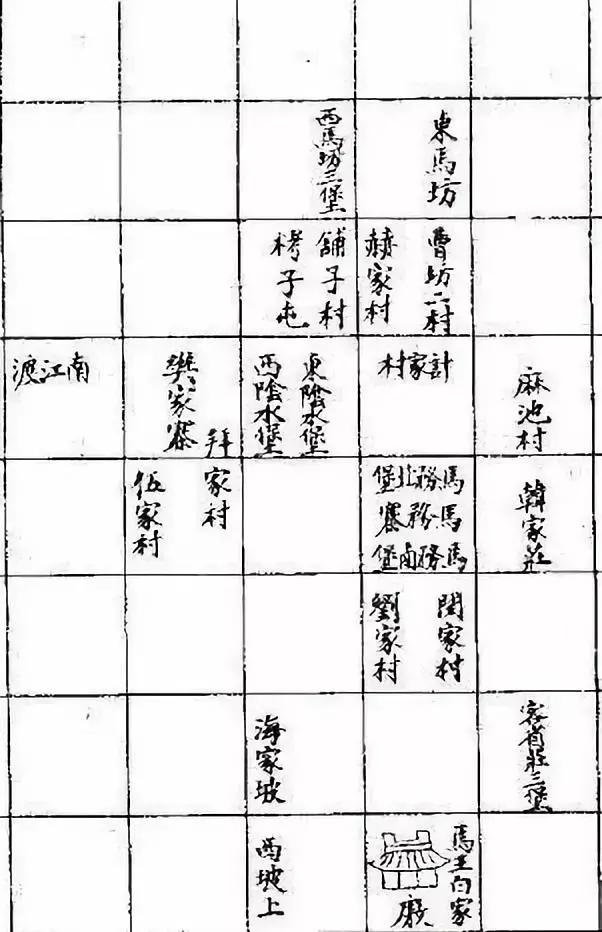 東馬坊
西馬坊三堡
曹坊二村
赫家村
舖子村
栲子屯
麻池村
計家村
東陰水堡
西陰水堡
樊家寨
拜家村
南江渡
韓家莊
馬務北堡
馬務寨
馬務南堡
伍家村
閆家村
劉家村
客省莊三堡
海家坡
馬王白家
廠
西坡上